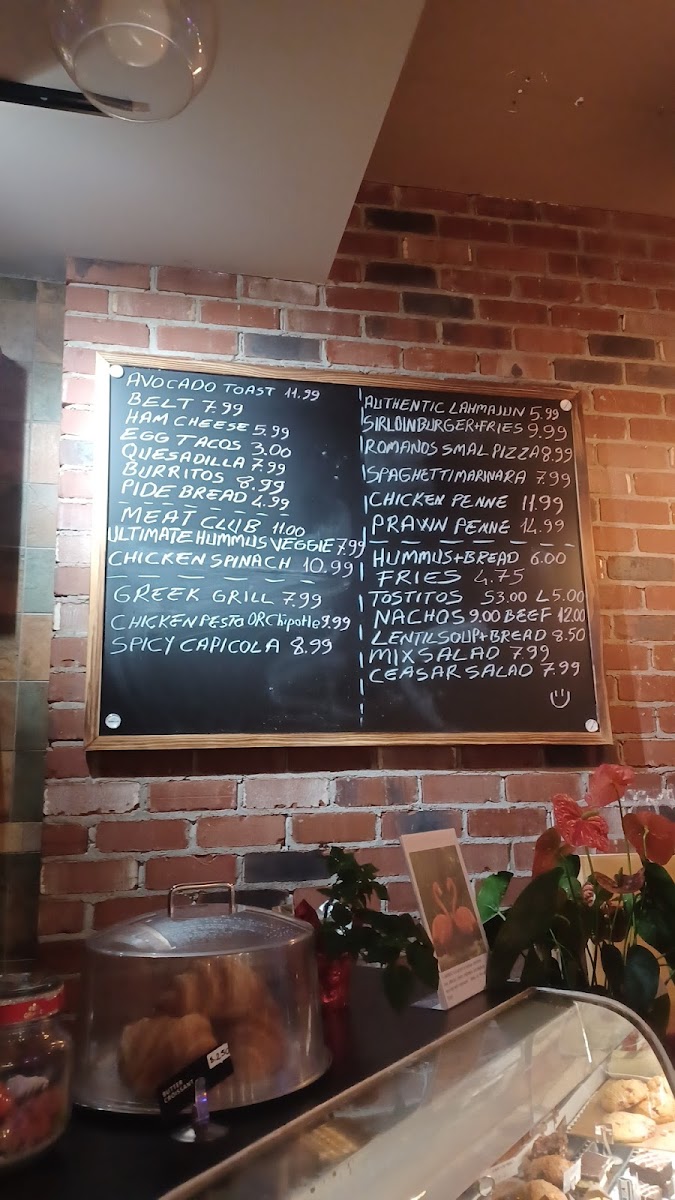 AVOCADO TOAST 11.99
BELT 7.99
HAM CHEESE 5.99
EGG TACOS 3.00
QUESADILLA 7.99
BURRITOS 8.99
PIDE BREAD 4.99
MEAT CLUB 11.00
ULTIMATE HUMMUS VEGGIE 7.99
CHICKEN SPINACH 10.99
GREEK GRILL 7.99
CHICKEN PESTO OR Chipotle 9.99
SPICY CAPICOLA 8.99
AUTHENTIC LAHMAJUN 5.99
SIRLOIN BURGER+FRIES 9.99
ROMANOS SMAL PIZZA 8.99
SPAGHETTI MARINARA 7.99
CHICKEN PENNE 11.99
PRAWN PENNE 14.99
HUMMUS+BREAD 6.00
FRIES 4.75
TOSTITOS S3.00 L5.00
NACHOS 9.00 BEEF 12.00
LENTIL SOUP+BREAD 8.50
MIX SALAD 7.99
CEASAR SALAD 7.99
BUTTER
CROISSANT